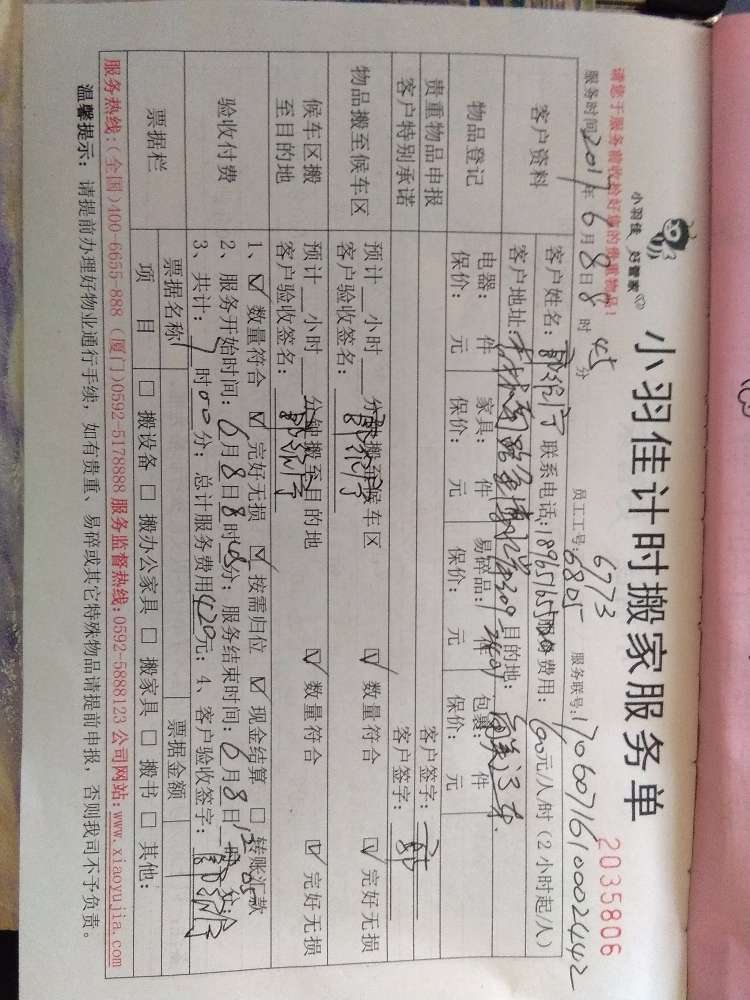 小羽佳 好管家
小羽佳计时搬家服务单
2035806
请您于服务前收拾好您的贵重物品！
员工工号: 6773
6805
服务联号: 1706071610002442
服务时间2017年6月8日8时45分
客户资料
客户姓名: 联系电话: 服务费用: 60元/人/时（2小时起/人）
客户地址: 目的地:
物品登记
电器: 件 家具: 件 易碎品: 件 包裹: 件
保价: 元 保价: 元 保价: 元 保价: 元
贵重物品申报 客户签字:
客户特别承诺 客户签字:
物品搬至候车区
预计__小时__分钟搬至候车区 ☑ 数量符合 ☑ 完好无损
客户验收签名:
候车区搬至目的地
预计__小时__分钟搬至目的地 ☑ 数量符合 ☑ 完好无损
客户验收签名:
验收付费
1、☑ 数量符合 ☑ 完好无损 ☑ 按需归位 ☑ 现金结算 □ 转账汇款
2、服务开始时间: 6月8日8时分; 服务结束时间: 6月8日时分;
3、共计: 7时00分; 总计服务费用420元; 4、客户验收签字:
票据栏
票据名称 票据金额
项目 □ 搬设备 □ 搬办公家具 □ 搬家具 □ 搬书 □ 其他:
服务热线:(全国)400-6655-888 (厦门)0592-5178888 服务监督热线:0592-5888123 公司网站:www.xiaoyujia.com
温馨提示: 请提前办理好物业通行手续，如有贵重、易碎或其它特殊物品请提前申报，否则我司不予负责。